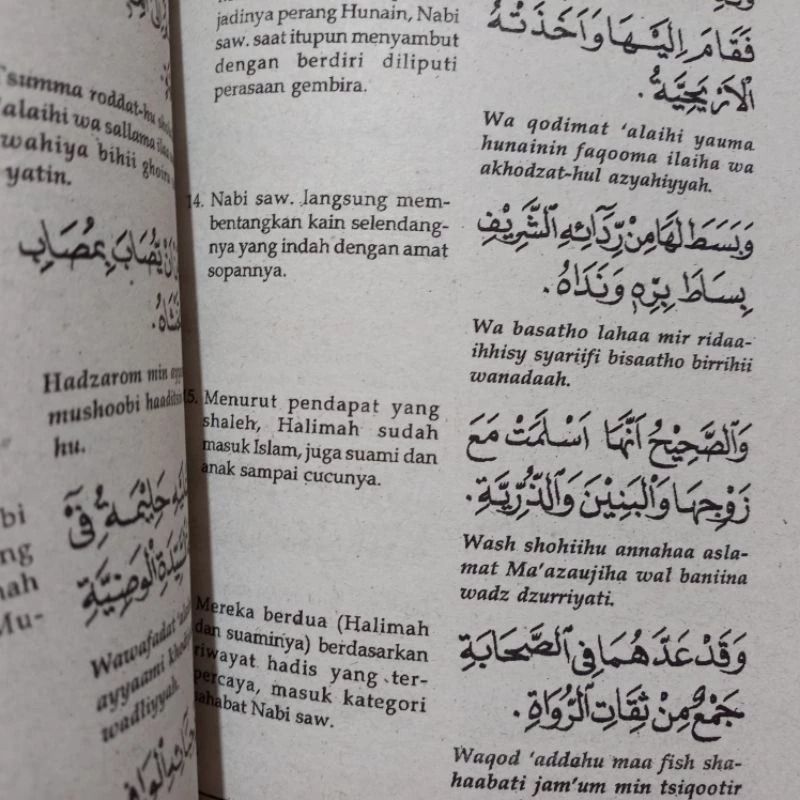 'summa roddat-hu
'alaihi wa sallama
wahiya bihii ghoiro
yatin.
يُصَابَ بِمُصَابِ
Hadzarom min
mushoobi haaditsa
hu.
حَلِيْمَةُ فِيْ
السَّيِّدَةِ الْوَضِيَّةِ
Wawafadat
ayyaami
wadliyyah.
jadinya perang Hunain, Nabi
saw. saat itupun menyambut
dengan berdiri diliputi
perasaan gembira.
14. Nabi saw. langsung mem-
bentangkan kain selendang-
nya yang indah dengan amat
sopannya.
15. Menurut pendapat yang
shaleh, Halimah sudah
masuk Islam, juga suami dan
anak sampai cucunya.
Mereka berdua (Halimah
dan suaminya) berdasarkan
riwayat hadis yang ter-
percaya, masuk kategori
sahabat Nabi saw.
فَقَامَ اِلَيْهَا وَاَخَذَتْهُ
الْاَرْيَحِيَّةُ.
Wa qodimat 'alaihi yauma
hunainin faqooma ilaiha wa
akhodzat-hul azyahiyyah.
وَبَسَطَ لَهَا مِنْ رِّدَائِهِ الشَّرِيْفِ
بِسَاطَ بِرِّهِ وَنَدَاهُ.
Wa basatho lahaa mir ridaa-
ihhisy syariifi bisaatho birrihii
wanadaah.
وَالصَّحِيْحُ اَنَّهَا اَسْلَمَتْ مَعَ
زَوْجِهَا وَالْبَنِيْنَ وَالذُّرِّيَّةِ.
Wash shohiihu annahaa asla-
mat Ma'azaujiha wal baniina
wadz dzurriyati.
وَقَدْ عَدَّهُمَا فِى الصَّحَابَةِ
جَمْعٌ مِنْ ثِقَاتِ الرُّوَاةِ.
Waqod 'addahu maa fish sha-
haabati jam'um min tsiqootir